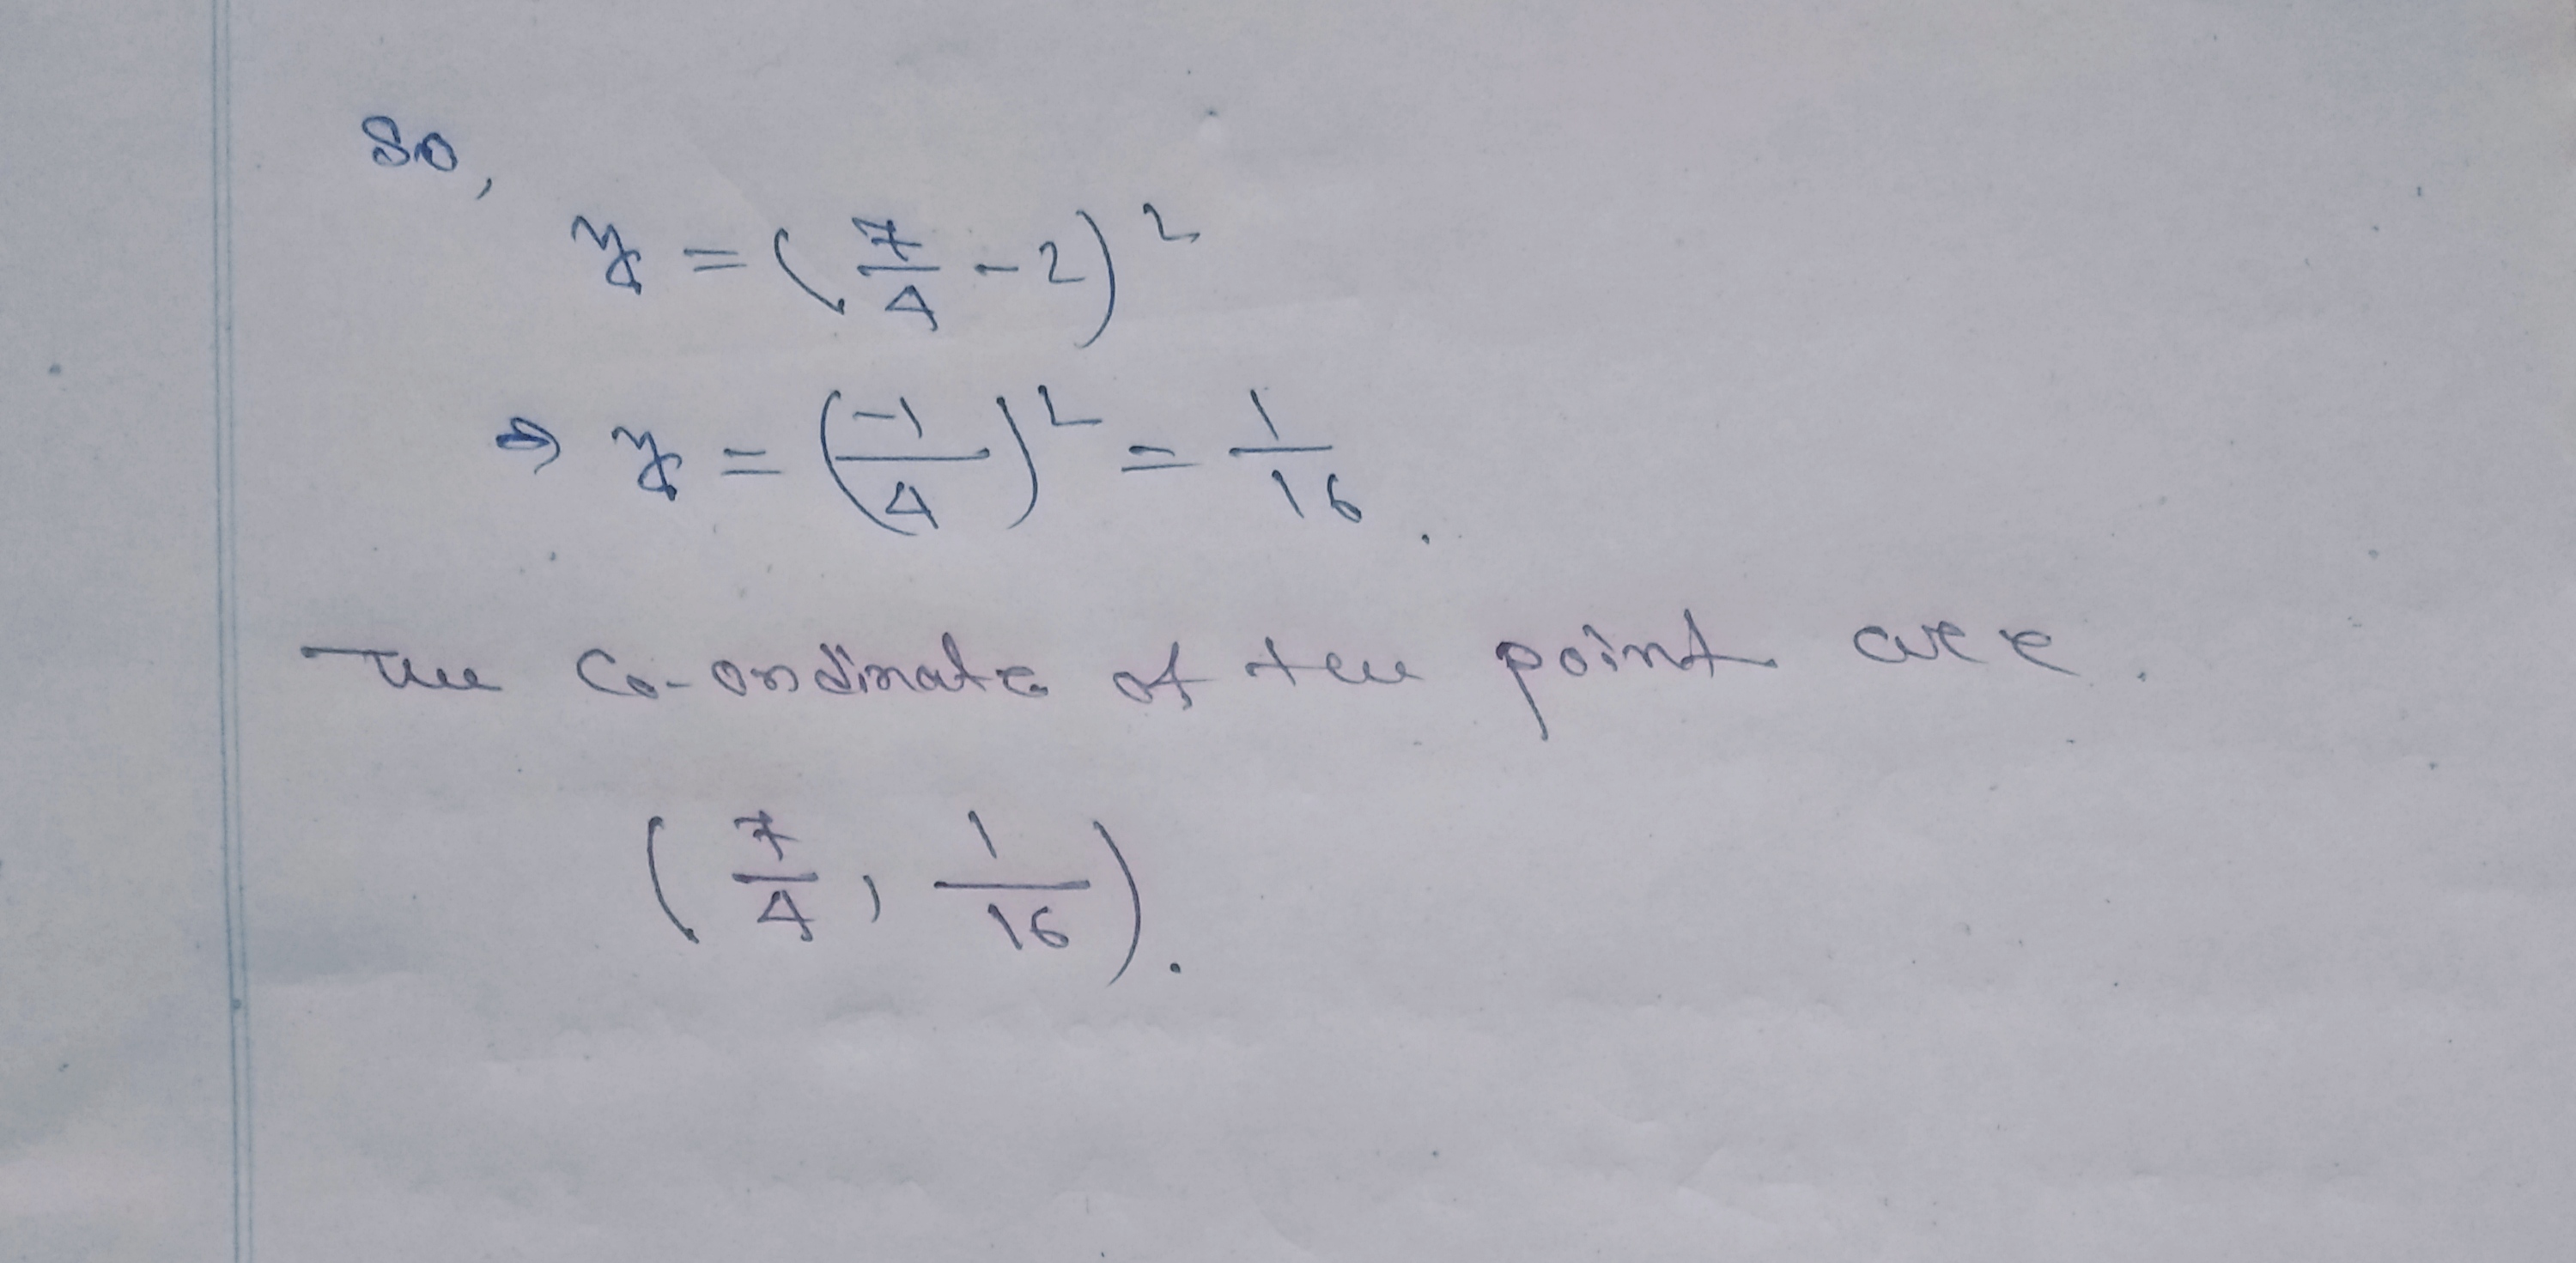 So,
y = (7/4 - 2)²
⇒ y = (-1/4)² = 1/16.
The Co-ordinate of the point are.
(7/4, 1/16).